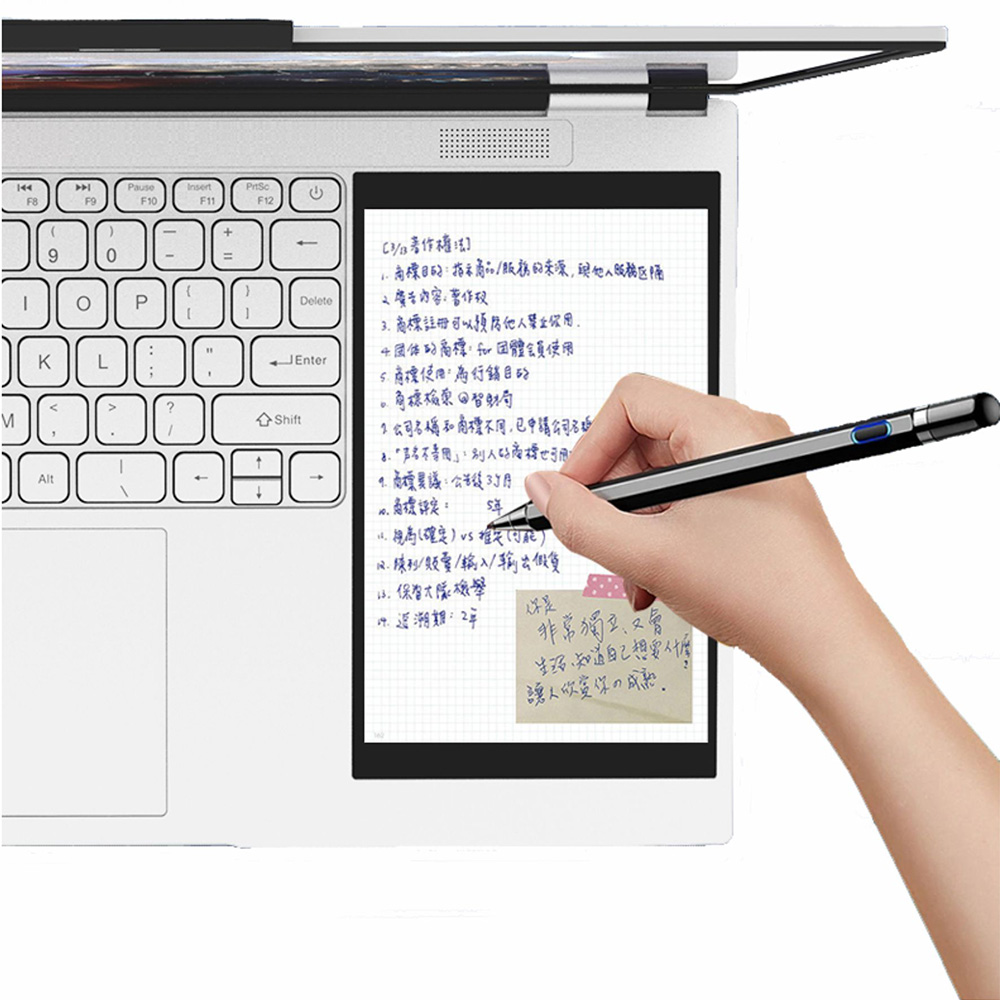 F8 F9 Pause F10 Insert F11 PrtSc F12
( 9 ) 0 — - + =
I O P { [ } ] Delete
K L : ; " ' Enter
M < , > . ? / Shift
Alt | \
[3/13 著作權法]
1. 商標目的：指示商品/服務的來源，跟他人服務區隔
2. 廣告內容：著作权
3. 商標註冊可以預防他人禁止使用.
4. 团体的商標：for 团體会員使用
5. 商標使用：為行銷目的
6. 商標檢索 回智財局
7. 公司名稱和商標不同，已申請公司名稱
8.「善意不專用」：別人的商標也可用
9. 商標異議：公告後3个月
10. 商標評定： 5年
11. 視為(確定) vs 推定(可能)
12. 陳列/販賣/輸入/輸出假貨
13. 保智大隊檢舉
14. 追溯期：2年
你是
非常獨立、又會
生活、知道自己想要什麼？
讓人欣賞你の成熟.